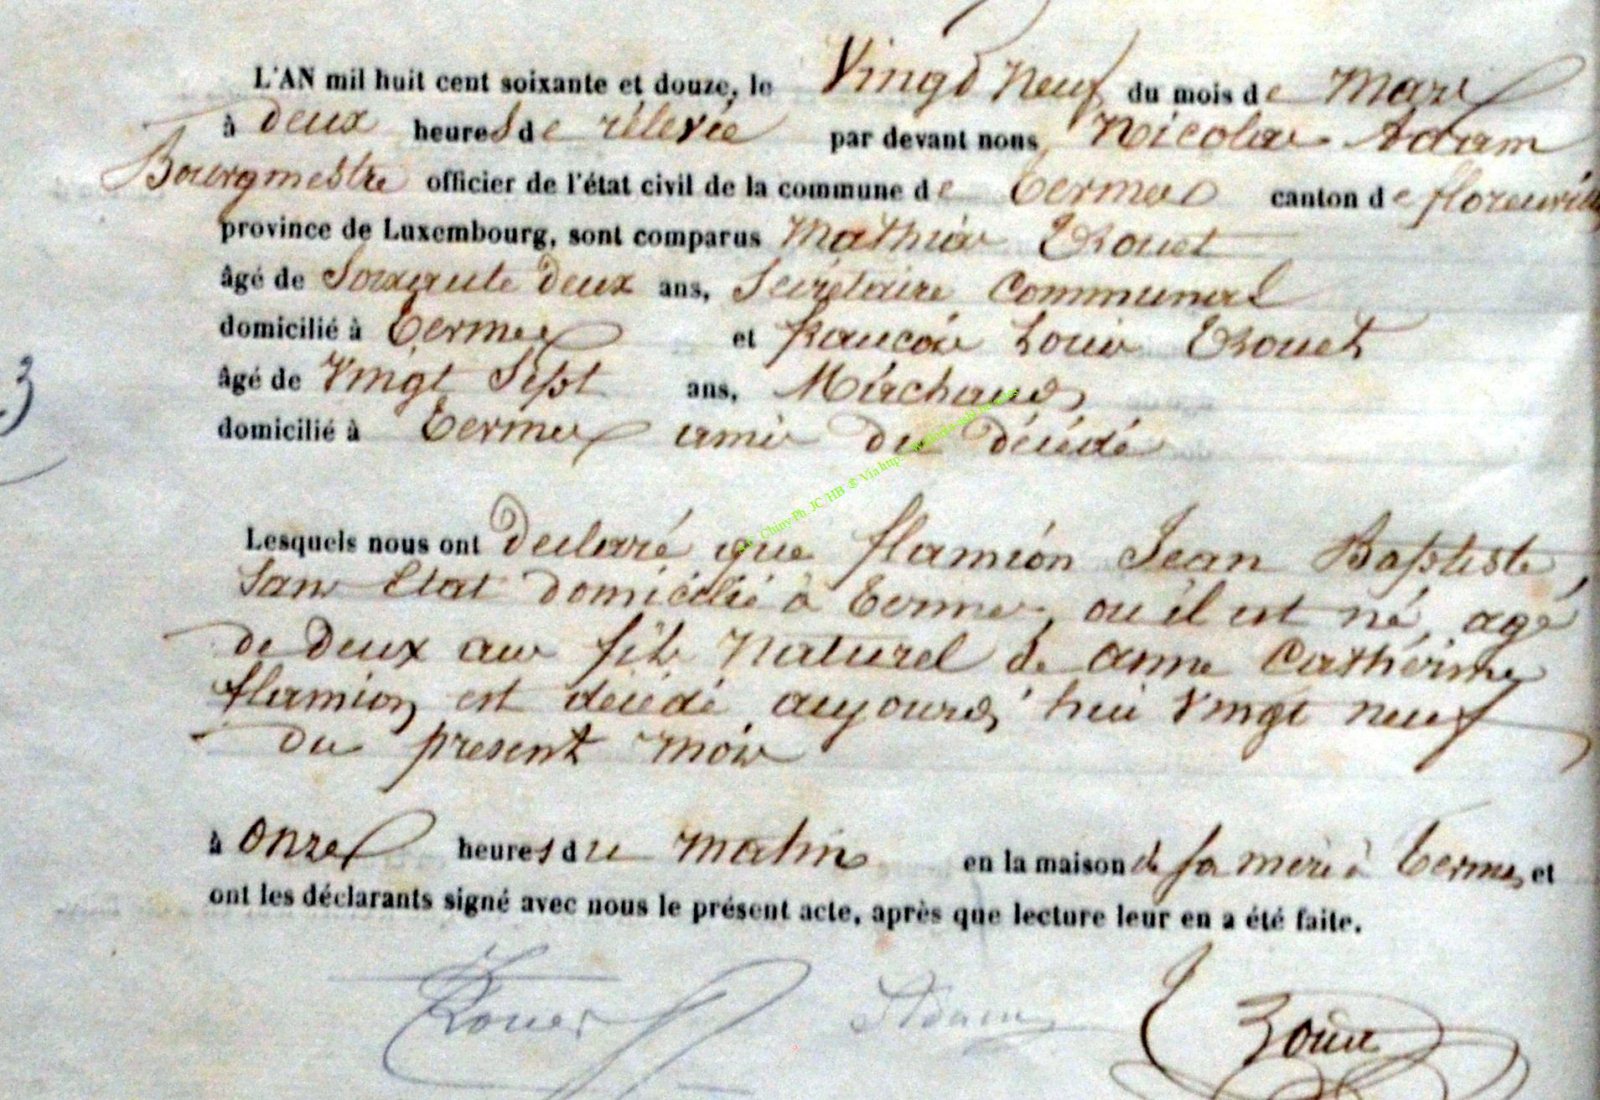 L'AN mil huit cent soixante et douze, le Vingt Neuf du mois de Mars
à deux heures de rélevée par devant nous Nicolas Adam
Bourgmestre officier de l'état civil de la commune de Termes canton de florenville
province de Luxembourg, sont comparus Mathias Trouet
âgé de Soixante deux ans, Secrétaire Communal
domicilié à Termes et françois Louis Trouet
âgé de Vingt Sept ans, Marchand
domicilié à Termes amis du décédé
3
Lesquels nous ont déclaré que flamion Jean Baptiste,
Sans Etat domicilié à Termes, ou il est né, agé
de deux ans fils Naturel de anne Cathérine
flamion, est décédé aujourd'hui Vingt neuf
du présent mois
à Onze heures du Matin en la maison de sa mère à Termes, et
ont les déclarants signé avec nous le présent acte, après que lecture leur en a été faite.
Adam